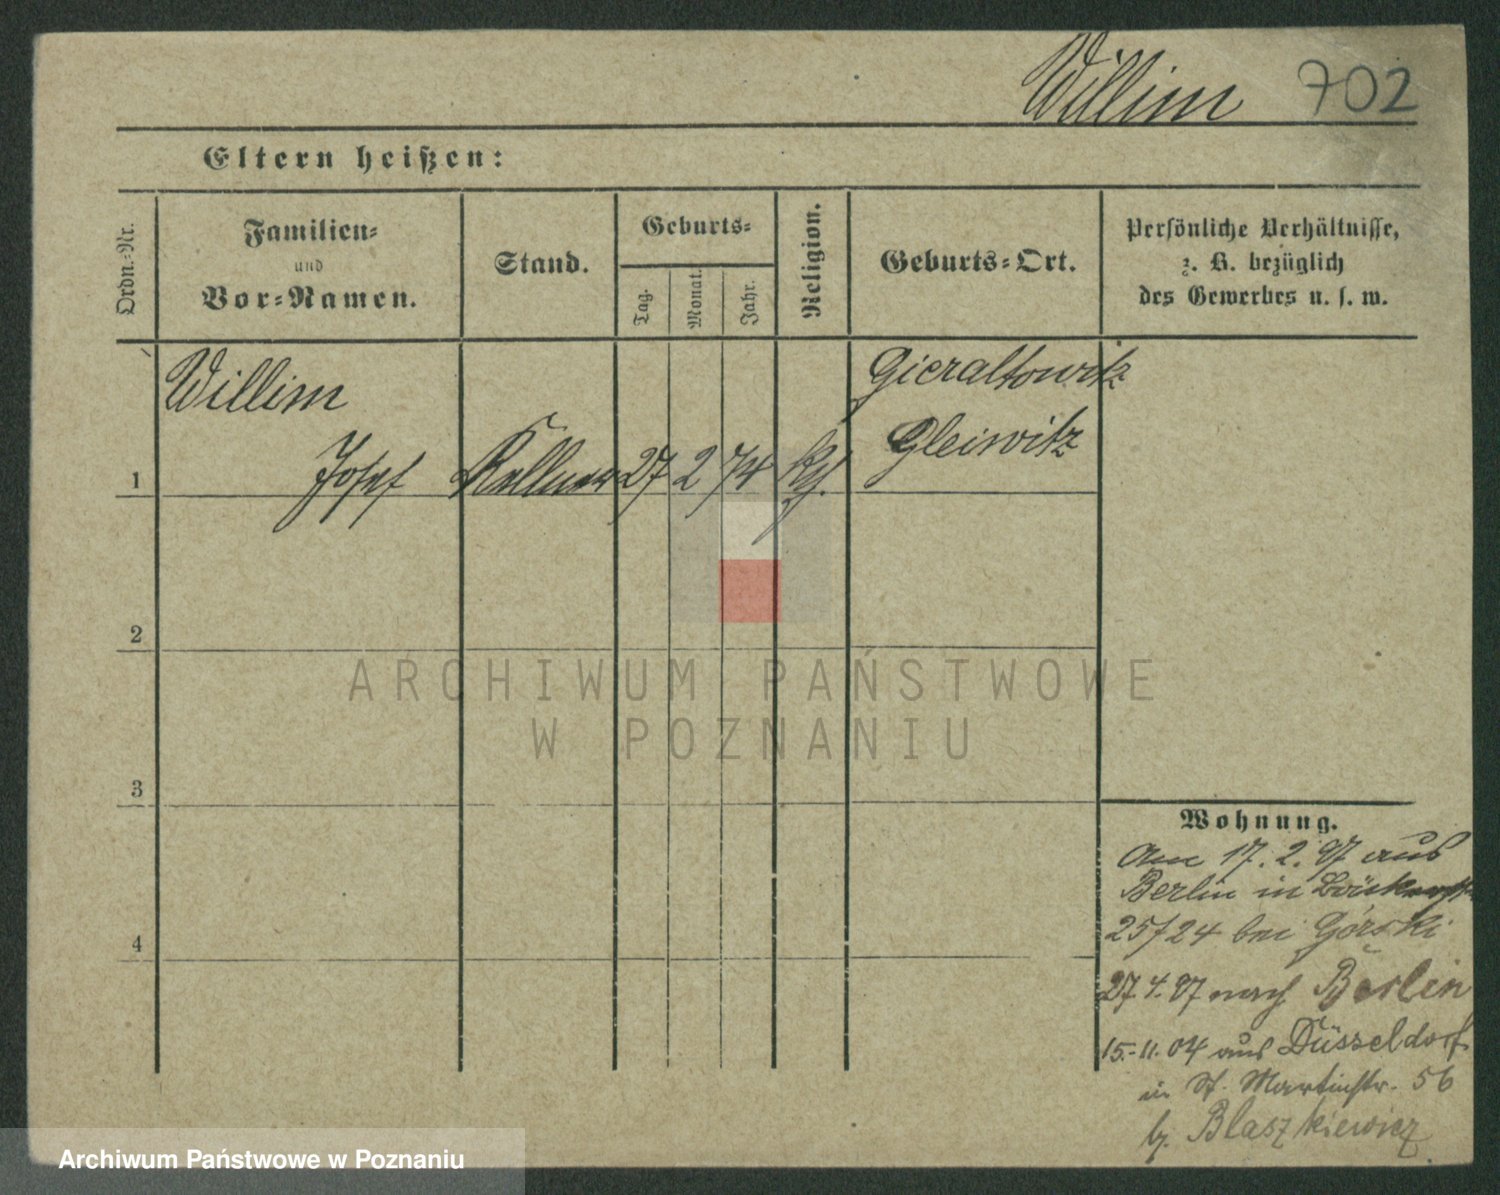 Willim 702
Eltern heißen:
Ordn.-Nr.
Familien-
und
Vor-Namen.
Stand.
Geburts-
Tag.
Monat.
Jahr.
Religion.
Geburts-Ort.
Persönliche Verhältnisse,
z. B. bezüglich
des Gewerbes u. s. w.
Willim
Josef Kellner 27 2 74 kath.
Gieraltowitz
Gleiwitz
1
2
3
4
Wohnung.
Am 17. 2. 97 aus
Berlin in
25/24 bei Górski
27 4. 97 nach Berlin
15.-11. 04 aus Düsseldorf
in St. Martinstr. 56
b. Blaszkiewicz
ARCHIWUM PAŃSTWOWE
W POZNANIU
Archiwum Państwowe w Poznaniu